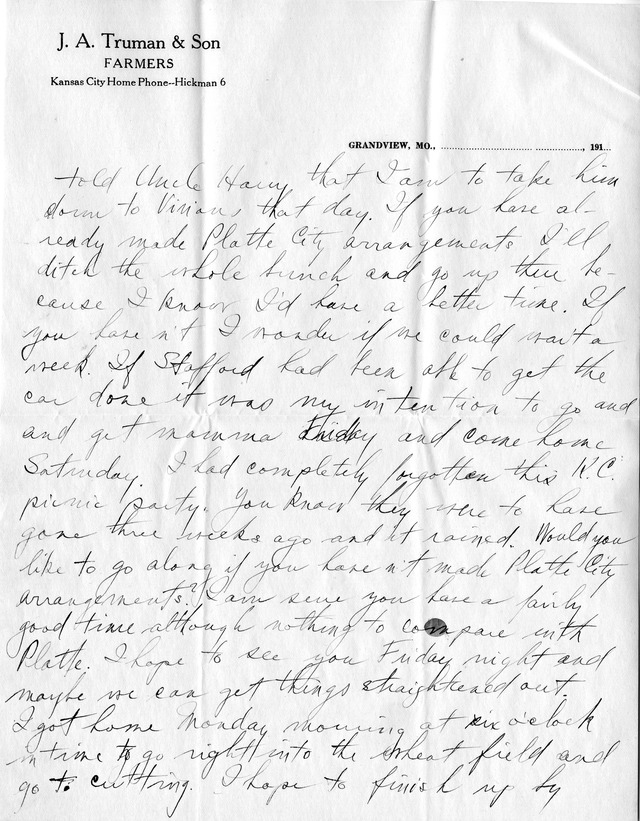 J. A. Truman & Son
FARMERS
Kansas City Home Phone--Hickman 6
GRANDVIEW, MO., ............................................, 191...
told Uncle Harry that I am to take him
down to Vivians that day. If you have al-
ready made Platte City arrangements I'll
ditch the whole bunch and go up there be-
cause I know I'd have a better time. If
you have n't I wonder if we could wait a
week. If Stafford had been able to get the
car done it was my intention to go and
and get mamma Friday and come home
Saturday. I had completely forgotten this K.C.
picnic party. You know they were to have
gone three weeks ago and it rained. Would you
like to go along if you have n't made Platte City
arrangements? I am sure you have a fairly
good time although nothing to compare with
Platte. I hope to see you Friday night and
maybe we can get things straightened out.
I got home Monday morning at six o'clock
in time to go right into the wheat field and
go to cutting. I hope to finish up by